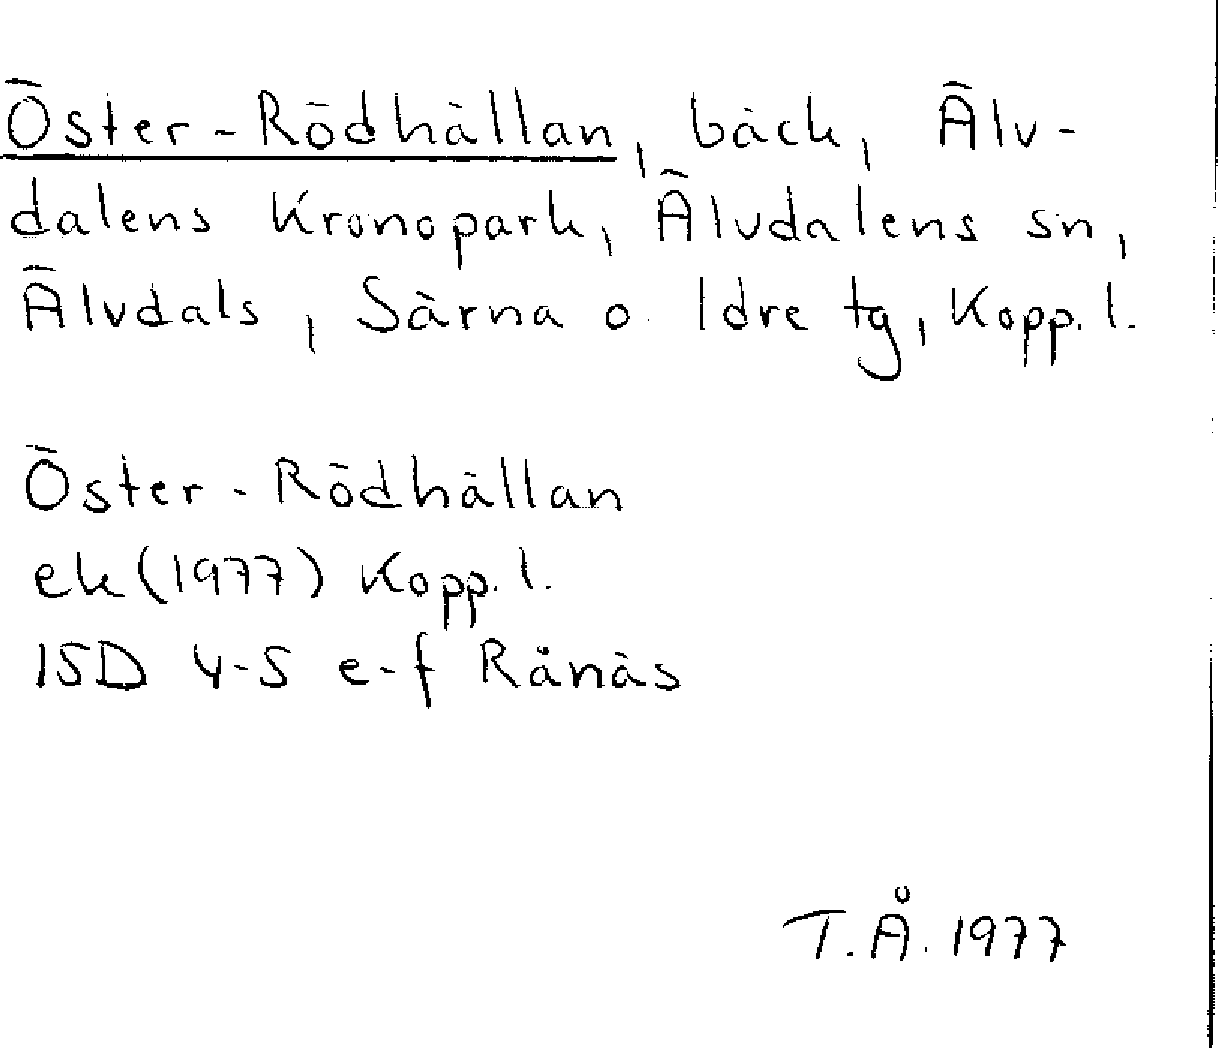 Öster-Rödhällan, bäck, Älv-
dalens Kronopark, Älvdalens sn,
Älvdals, Särna o Idre tg, Kopp. l.
Öster-Rödhällan
ek (1977) Kopp. l.
15D 4-5 e-f Rånäs
T.Å. 1977